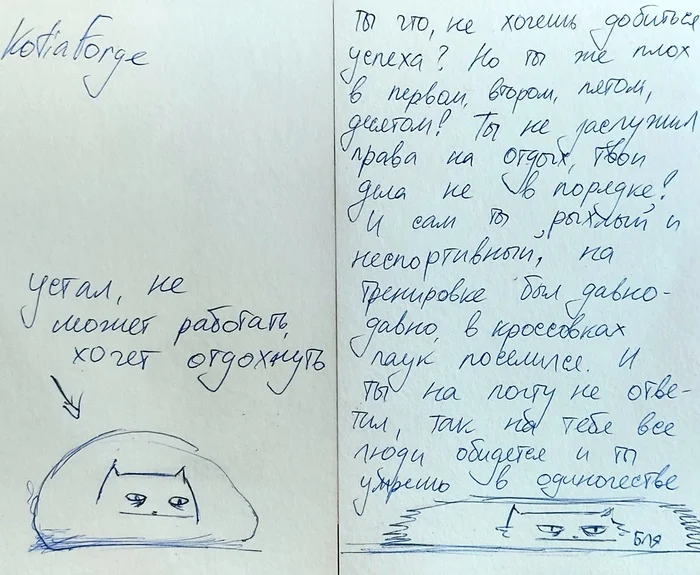 KotiaForge
устал, не
может работать,
хочет отдохнуть
Ты что, не хочешь добиться
успеха? Но ты же плох
в первом, втором, пятом,
десятом! Ты не заслужил
права на отдых, твои
дела не в порядке!
И сам ты рыхлый и
неспортивный, на
тренировке был давно-
давно, в кроссовках
паук поселился. И
ты на почту не отве-
тил, так на тебе все
люди обидятся и ты
умрешь в одиночестве
бля